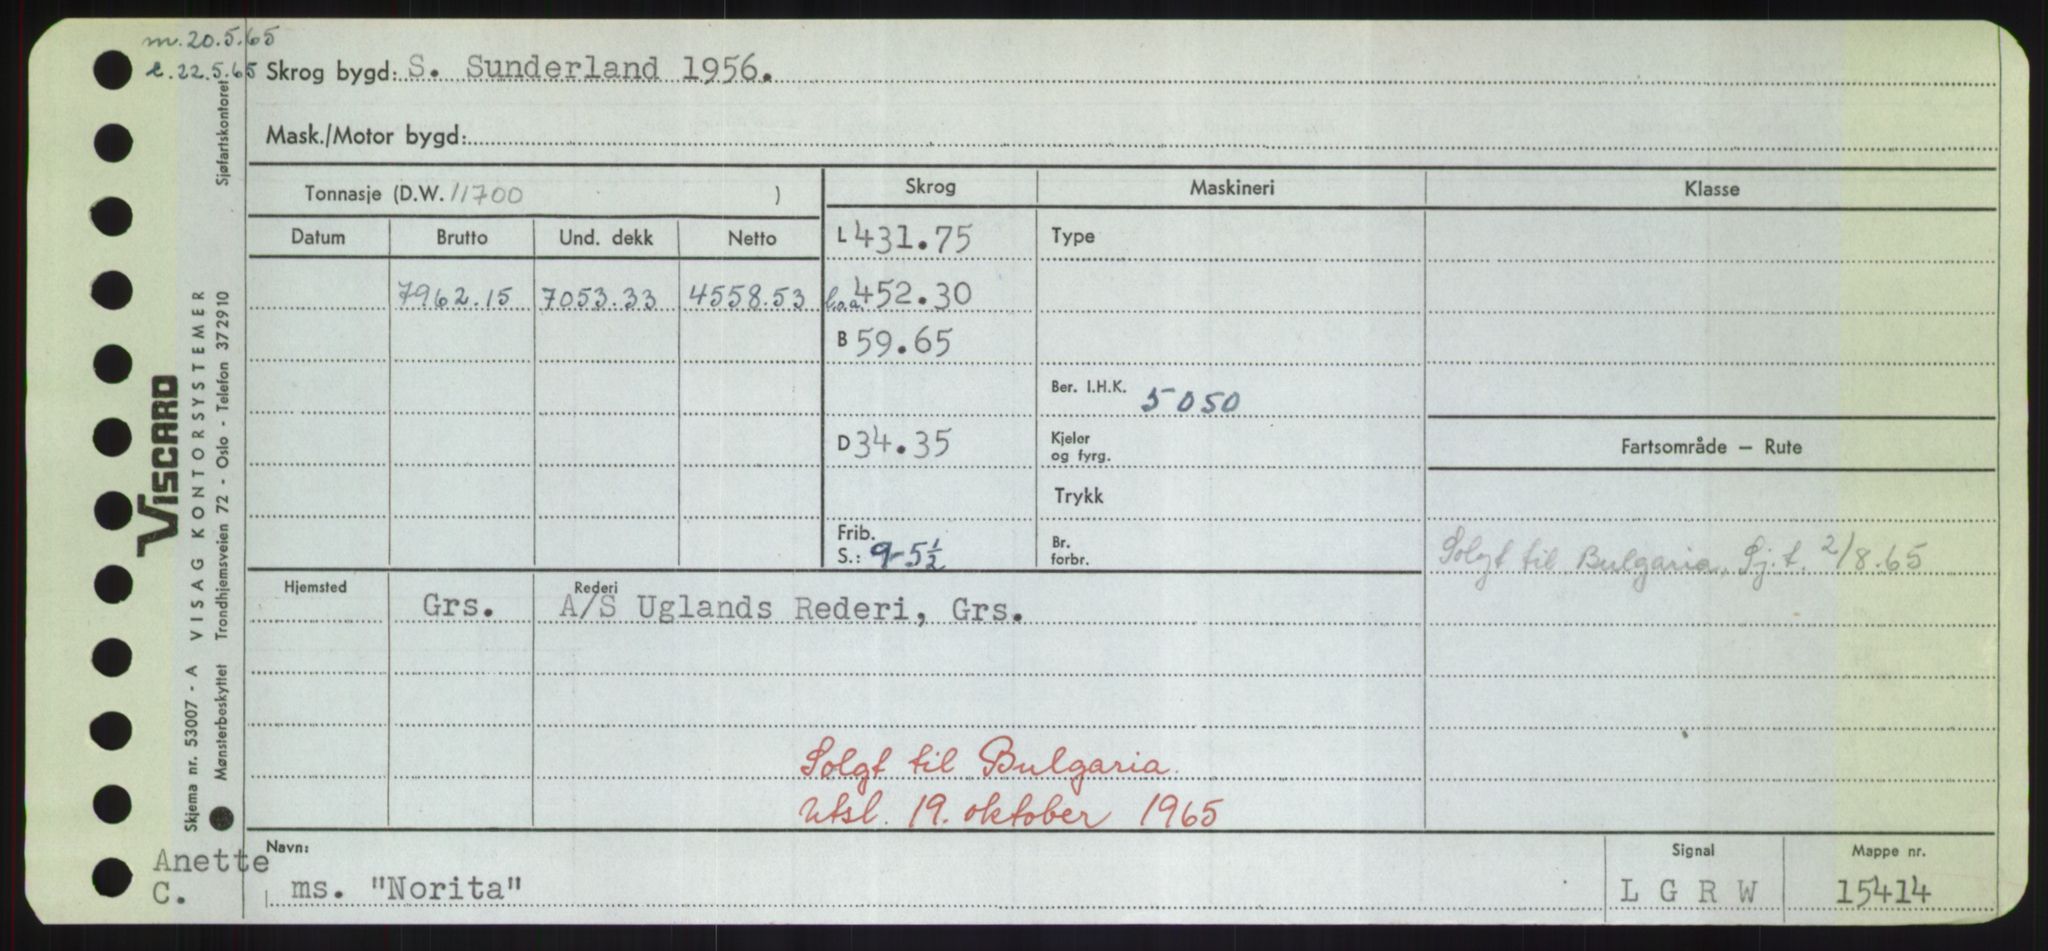 m. 20.5.65
l. 22.5.65
Skrog bygd: S. Sunderland 1956.
Mask./Motor bygd:
Tonnasje (D.W. 11700 )
Skrog Maskineri Klasse
Datum Brutto Und. dekk Netto
L 431.75 Type
7962.15 7053.33 4558.53 l.o.a. 452.30
B 59.65
Ber. I.H.K. 5050
D 34.35 Kjeler og fyrg.
Fartsområde — Rute
Trykk
Frib. S.: 9-5½ Br. forbr.
Solgt til Bulgaria, Sj.t. 2/8.65
Hjemsted Rederi
Grs. A/S Uglands Rederi, Grs.
Solgt til Bulgaria.
Utsl. 19. oktober 1965
Navn: Signal Mappe nr.
ms. "Norita" L G R W 15414
Anette
C.
VISCARD
Skjema nr. 53007 - A VISAG KONTORSYSTEMER Sjøfartskontoret
Mønsterbeskyttet Trondhjemsveien 72 - Oslo - Telefon 372910